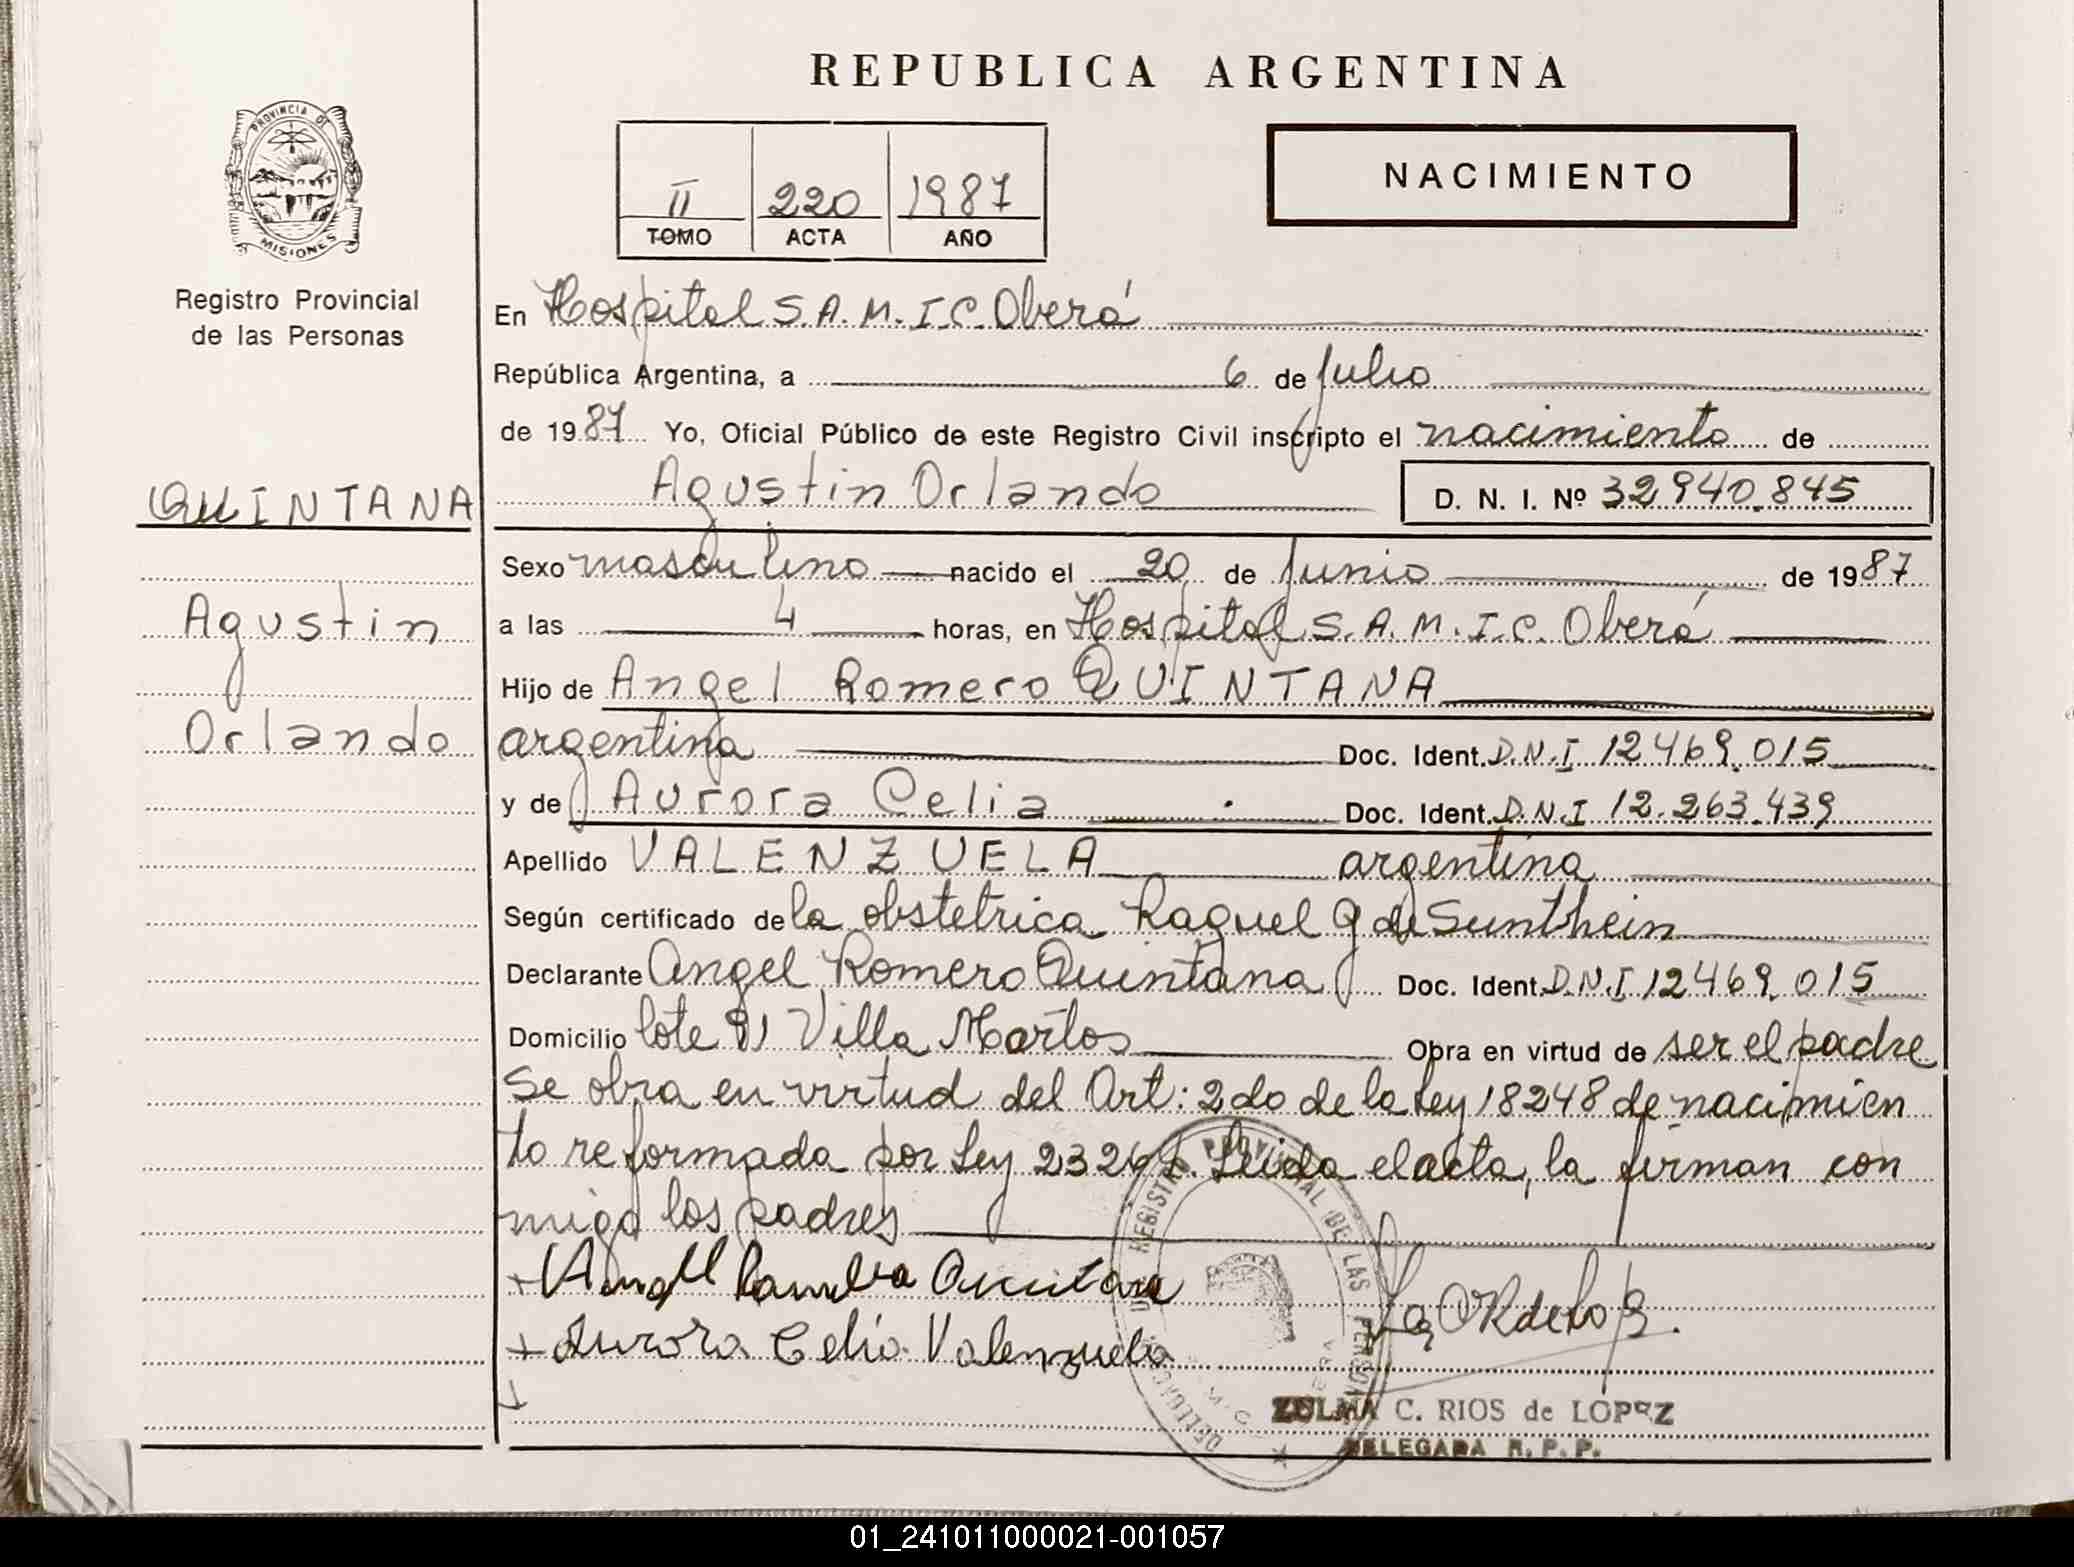 REPUBLICA ARGENTINA
PROVINCIA DE
MISIONES
Registro Provincial
de las Personas
II 220 1987
TOMO ACTA AÑO
NACIMIENTO
En Hospital S.A.M.I.C. Oberá
República Argentina, a 6 de julio
de 1987 Yo, Oficial Público de este Registro Civil inscripto el nacimiento de
Agustin Orlando D. N. I. Nº 32.940.845
QUINTANA
Agustin
Orlando
Sexo masculino nacido el 20 de junio de 1987
a las 4 horas, en Hospital S.A.M.I.C. Oberá
Hijo de Angel Romero QUINTANA
argentina Doc. Ident. D.N.I 12469.015
y de Aurora Celia Doc. Ident. D.N.I 12.263.439
Apellido VALENZUELA argentina
Según certificado de la obstetrica Raquel G de Sunthein
Declarante Angel Romero Quintana Doc. Ident. D.N.I 12469.015
Domicilio lote 91 Villa Martos Obra en virtud de ser el padre
Se obra en virtud del Art: 2do de la Ley 18248 de nacimien
to reformada por Ley Leida el acta, la firman con
migo los padres
+ Quintana
+ Aurora Celia Valenzuela
+
REGISTRO PROVINCIAL DE LAS PERSONAS
ZULMA C. RIOS de LOPEZ
DELEGADA R. P. P.
01_241011000021-001057